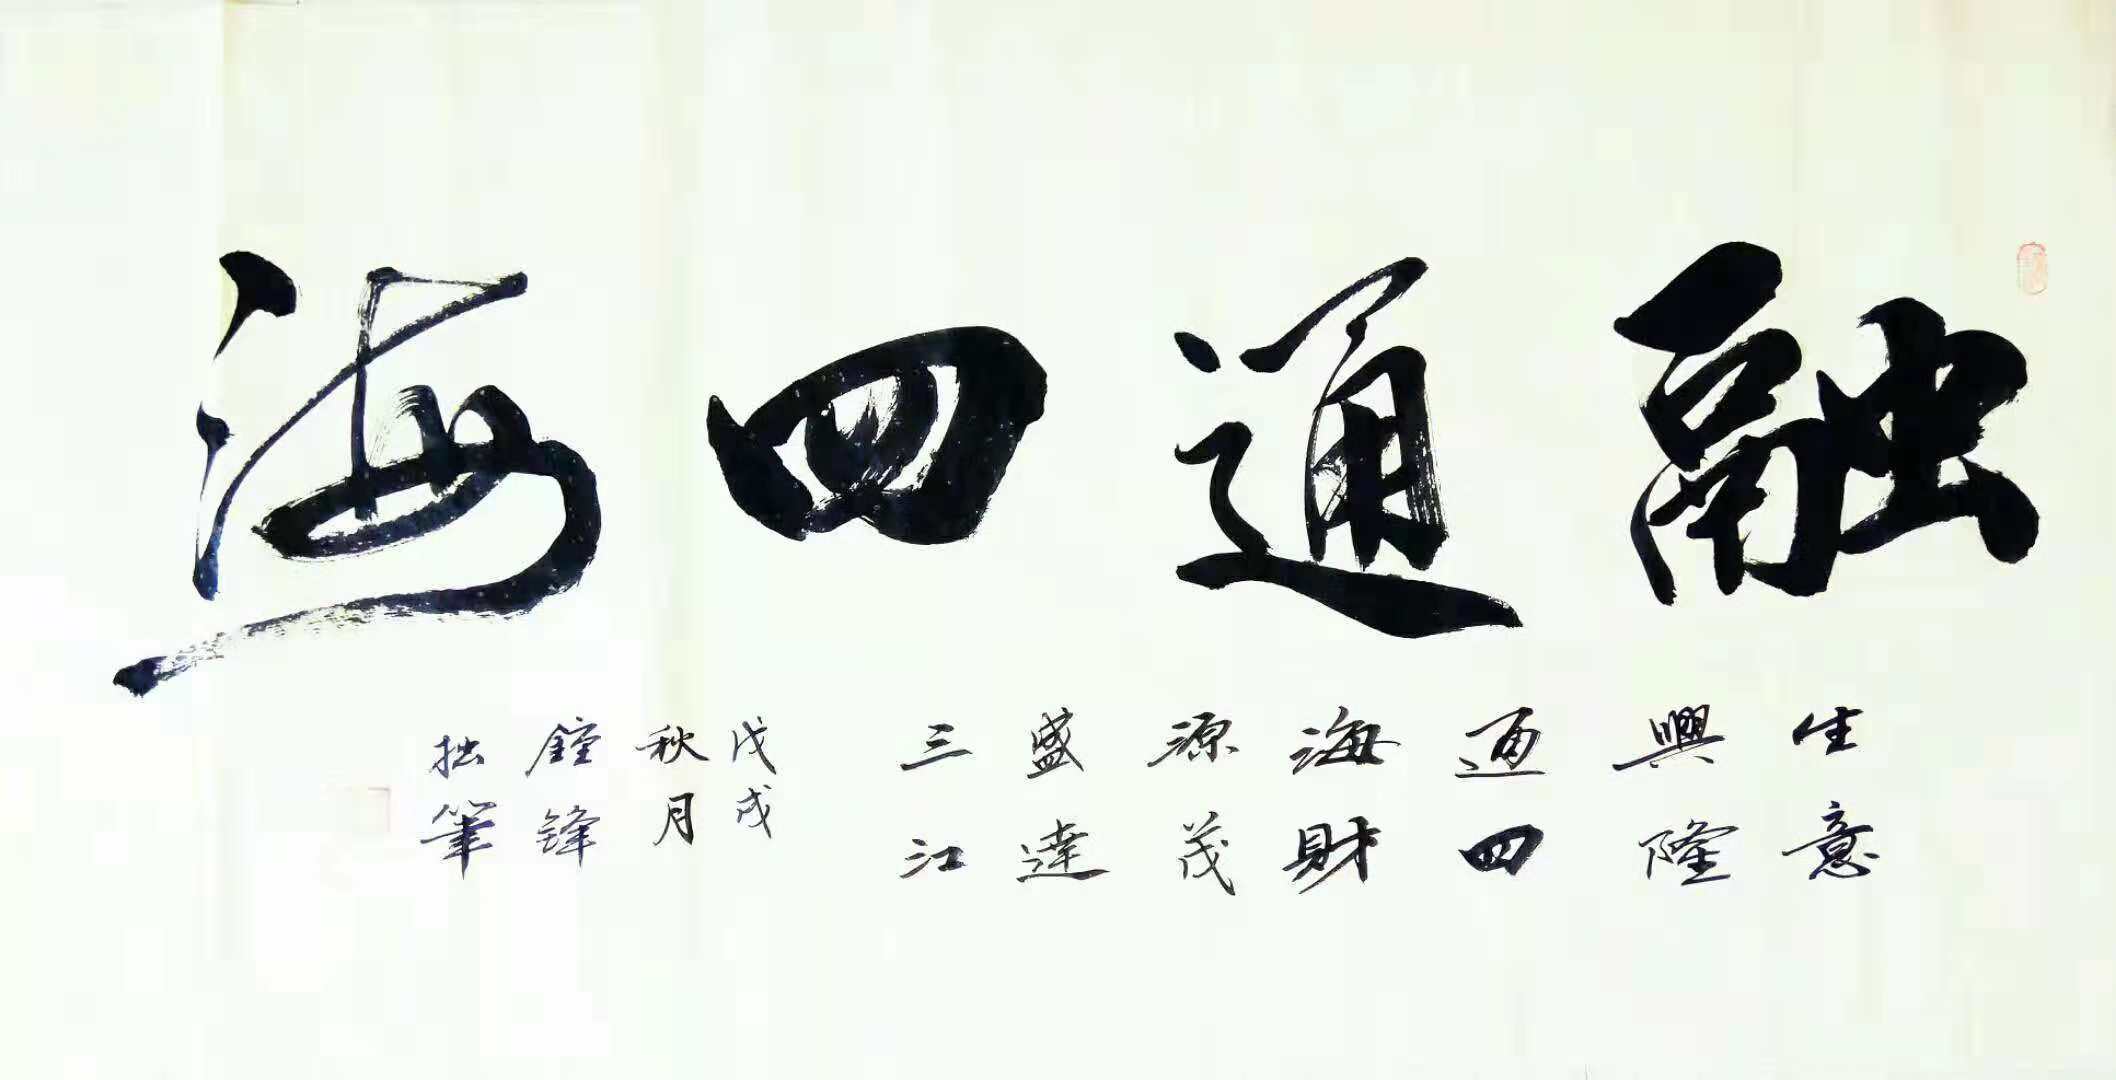 融通四海
生意
興隆
通四
海財
源茂
盛達
三江
戊戌
秋月
鐘锋
拙筆